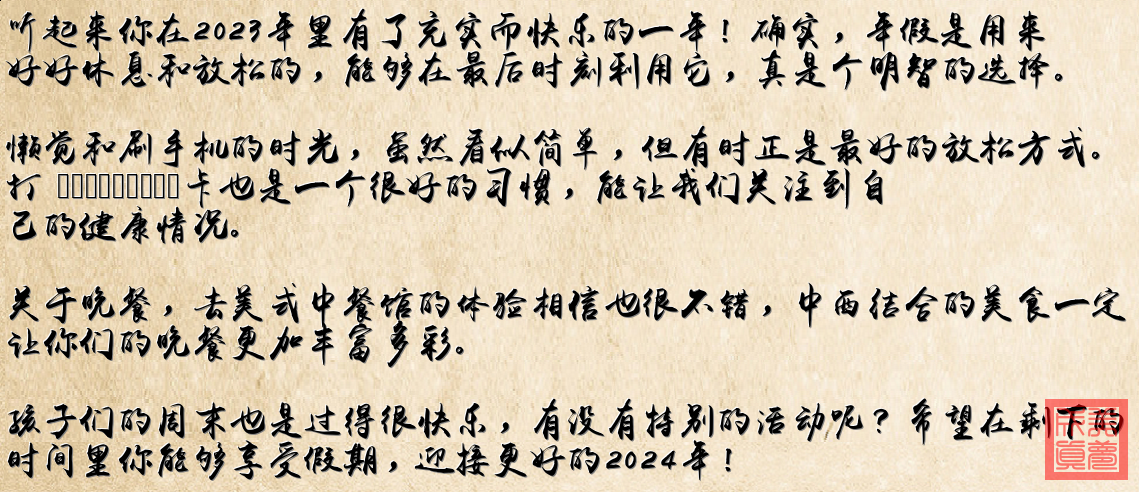 听起来你在2023年里有了充实而快乐的一年！确实，年假是用来
好好休息和放松的，能够在最后时刻利用它，真是个明智的选择。
懒觉和刷手机的时光，虽然看似简单，但有时正是最好的放松方式。
打 卡也是一个很好的习惯，能让我们关注到自
己的健康情况。
关于晚餐，去美式中餐馆的体验相信也很不错，中西结合的美食一定
让你们的晚餐更加丰富多彩。
孩子们的周末也是过得很快乐，有没有特别的活动呢？希望在剩下的
时间里你能够享受假期，迎接更好的2024年！